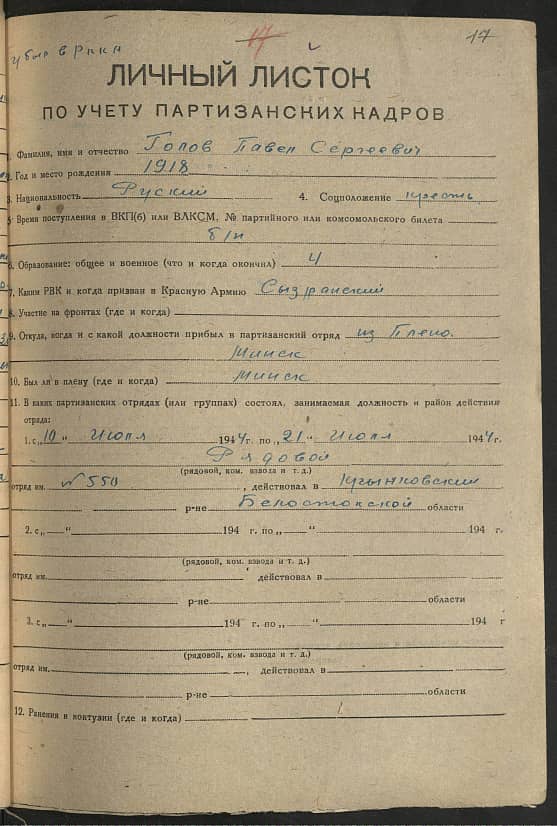 убыл в РККА
17 17
ЛИЧНЫЙ ЛИСТОК
ПО УЧЕТУ ПАРТИЗАНСКИХ КАДРОВ
1. Фамилия, имя и отчество Попов Павел Сергеевич
2. Год и место рождения 1918
3. Национальность Руский 4. Соцположение крестъ.
5. Время поступления в ВКП(б) или ВЛКСМ, № партийного или комсомольского билета
б/п
6. Образование: общее и военное (что и когда окончил) 4
7. Каким РВК и когда призван в Красную Армию Сызранский
8. Участие на фронтах (где и когда)
9. Откуда, когда и с какой должности прибыл в партизанский отряд из Плена.
Минск
10. Был ли в плену (где и когда) Минск
11. В каких партизанских отрядах (или группах) состоял, занимаемая должность и район действия
отряда:
1. с „10" Июля 1944г. по „21" Июля 1944г.
Рядовой
(рядовой, ком. взвода и т. д.)
отряд им. №550, действовал в
р-не Белостокской области
2. с „ " 194 г. по „ " 194 г.
(рядовой, ком. взвода и т. д.)
отряд им. действовал в
р-не области
3. с „ " 194 г. по „ " 194 г
(рядовой, ком. взвода и т. д.)
отряд им. , действовал в
р-не области
12. Ранения и контузии (где и когда)